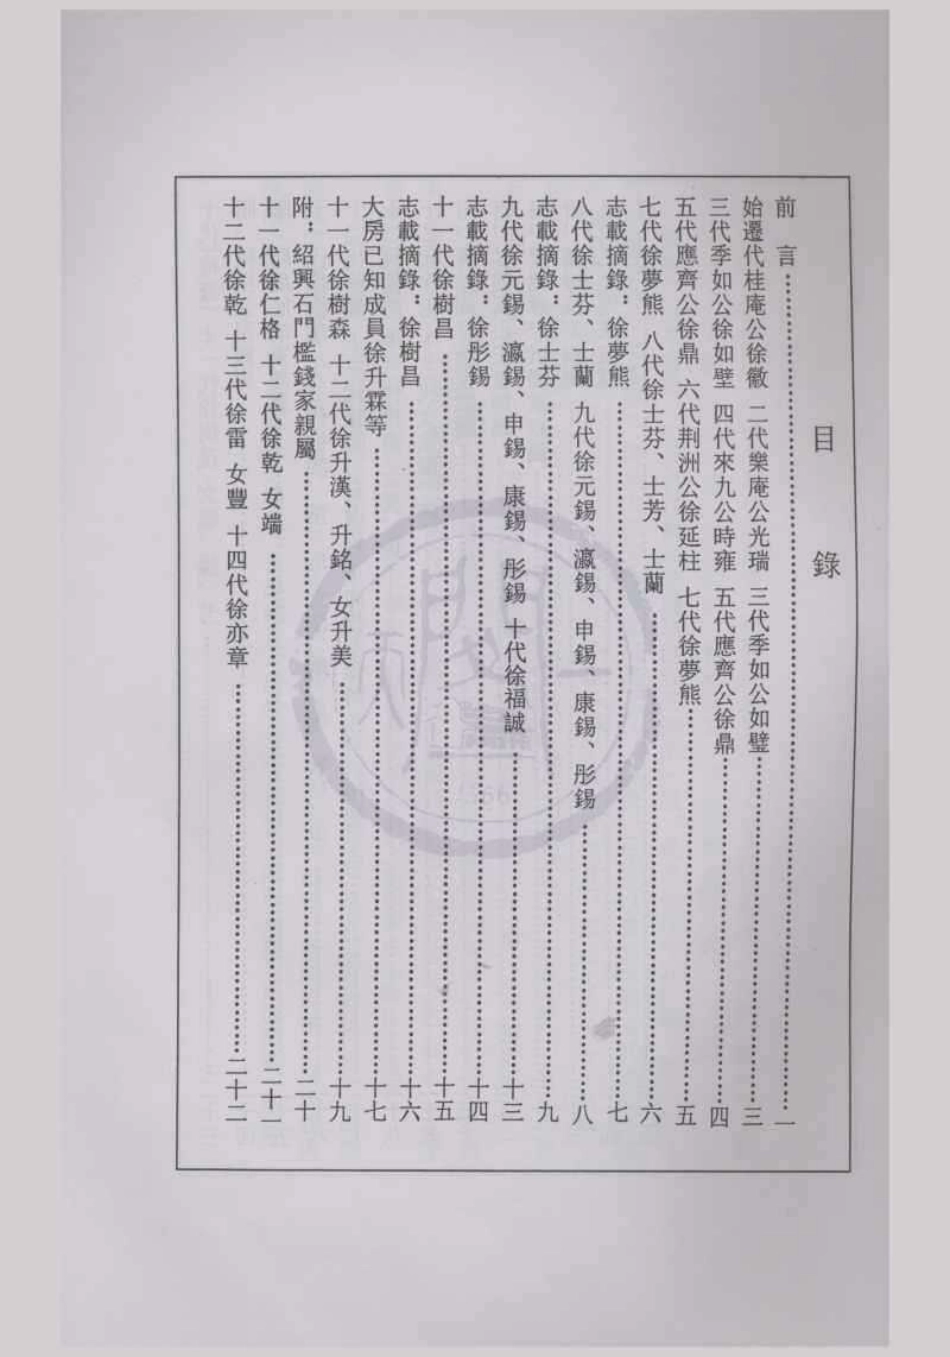 目錄
前言……一
始遷代桂庵公徐徽 二代樂庵公光瑞 三代季如公如璧……三
三代季如公徐如壁 四代來九公時雍 五代應齊公徐鼎……四
五代應齊公徐鼎 六代荆洲公徐延柱 七代徐夢熊……五
七代徐夢熊 八代徐士芬、士芳、士蘭……六
志載摘錄：徐夢熊……七
八代徐士芬、士蘭 九代徐元錫、瀛錫、申錫、康錫、彤錫……八
志載摘錄：徐士芬……九
九代徐元錫、瀛錫、申錫、康錫、彤錫 十代徐福誠……十三
志載摘錄：徐彤錫……十四
十一代徐樹昌……十五
志載摘錄：徐樹昌……十六
大房已知成員徐升霖等……十七
十一代徐樹森 十二代徐升漢、升銘、女升美……十九
附：紹興石門檻錢家親屬……二十
十一代徐仁格 十二代徐乾 女端……二十一
十二代徐乾 十三代徐雷 女豐 十四代徐亦章……二十二